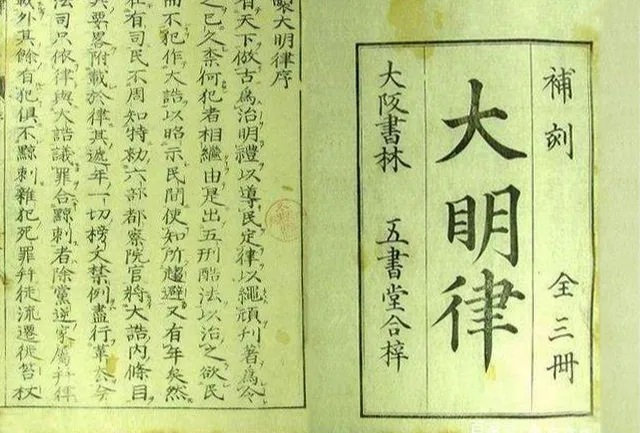 補刻 全三冊
大明律
大阪書林 五書堂合梓
製大明律序
有天下倣古爲治明禮以導民定律以繩頑刊著爲令
之已久柰何犯者相繼由是出五刑酷法以治之欲民
而不犯作大誥以昭示民間使知所趨避又有年矣然
在有司民不周知特勑六部都察院官將大誥内條目
其要畧附載於律其遞年一切榜文禁例盡行革去今
法司只依律與大誥議罪合黥刺者除黨逆家屬幷律
載外其餘有犯俱不黥刺雜犯死罪幷徒流遷徙笞杖